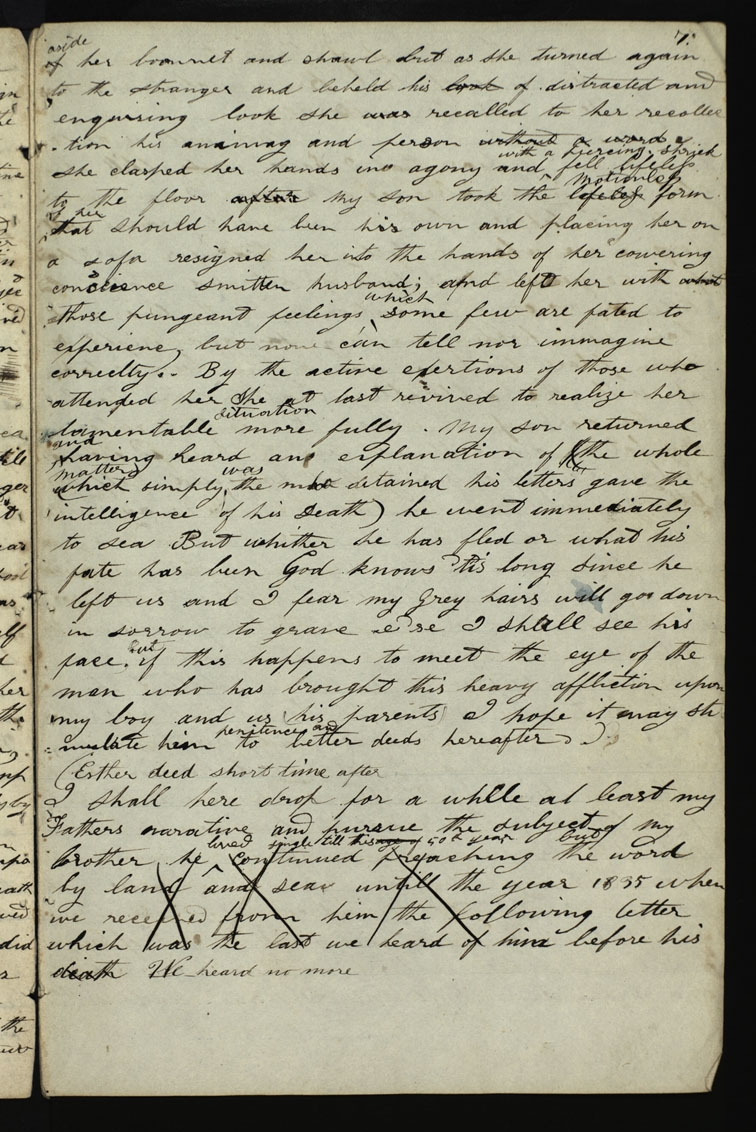 7.
aside
of her boonnet and shawl but as she turned again
to the stranger and beheld his look of distracted and
enquiring look she was recalled to her recollec
-tion his and person without a word
with a piercing shriek
she clasped her hands in agony and fell lifeless
Motionless
to the floor after My son took the lifeless form
of her
that should have been his own and placing her on
a sofa resigned her into the hands of her cowering
concience smitten husband; and left her with what
which
those pungeant feelings some few are fated to
experienc, but none can tell nor immagine
correctly.. By the active exertions of those who
attended her She at last revived to realize her
situation
lamentable more fully. My son returned
and
having heard an explanation of the whole
matter was
which simply the detained his letters gave the
intelligence of his Death) he went immediately
to sea But whither he has fled or what his
fate has been God knows tis long since he
left us and I fear my Grey hairs will go down
in sorrow to grave e're I shall see his
but
face. if this happens to meet the eye of the
man who has brought this heavy affliction upon
my boy and us his parents I hope it may sti
penitence and
-mulate him to better deeds hereafter.)
(Esther deed short time after
I shall here drop for a while at least my
Fathers narative and pursue the subject of my
lived single till his 50th year but
brother he continued preaching the word
by land and sea untill the year 1835 when
we received from him the following letter
which was the last we heard of him before his
death We heard no more